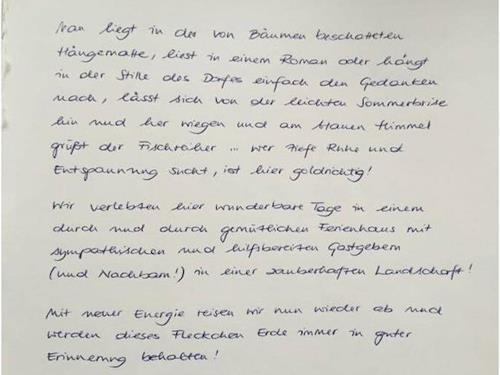 Man liegt in der von Bäumen beschatteten
Hängematte, liest in einem Roman oder hängt
in der Stille des Dorfes einfach den Gedanken
nach, lässt sich von der leichten Sommerbrise
hin und her wiegen und am blauen Himmel
grüßt der Fischreiher ... wer tiefe Ruhe und
Entspannung sucht, ist hier goldrichtig!
Wir verlebten hier wunderbare Tage in einem
durch und durch gemütlichen Ferienhaus mit
sympathischen und hilfsbereiten Gastgebern
(und Nachbarn!) in einer zauberhaften Landschaft!
Mit neuer Energie reisen wir nun wieder ab und
werden dieses Fleckchen Erde immer in guter
Erinnerung behalten!